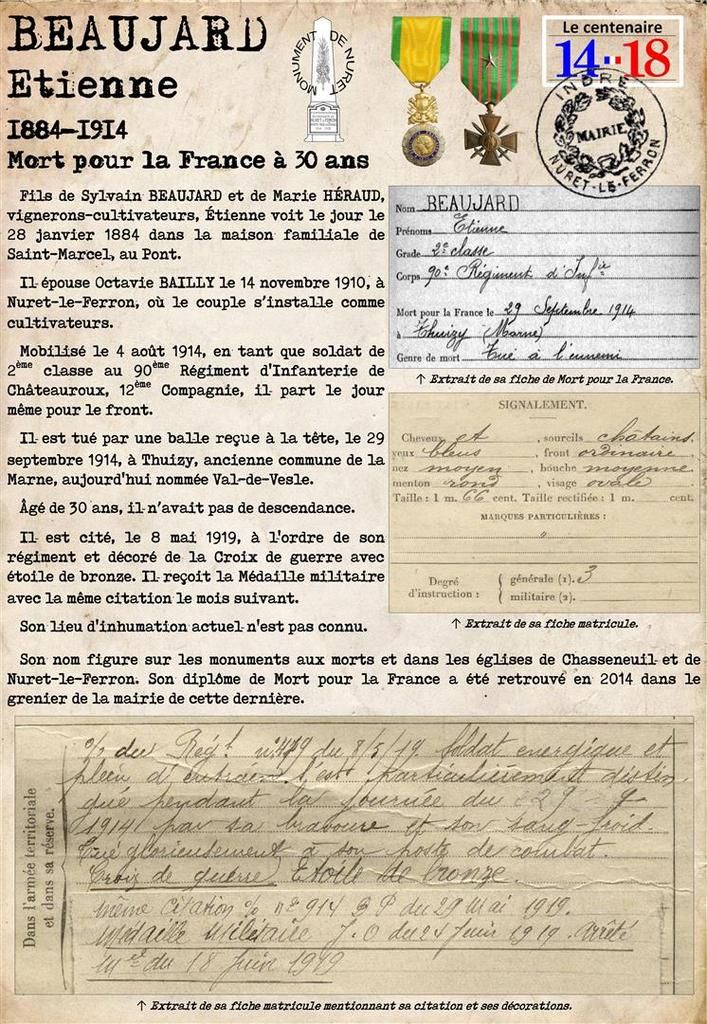 BEAUJARD
Etienne
1884-1914
Mort pour la France à 30 ans
MONUMENT DE NURET
Le centenaire
14··18
INDRE
MAIRIE
NURET-LE-FERRON
Fils de Sylvain BEAUJARD et de Marie HÉRAUD,
vignerons-cultivateurs, Étienne voit le jour le
28 janvier 1884 dans la maison familiale de
Saint-Marcel, au Pont.
Il épouse Octavie BAILLY le 14 novembre 1910, à
Nuret-le-Ferron, où le couple s'installe comme
cultivateurs.
Mobilisé le 4 août 1914, en tant que soldat de
2ème classe au 90ème Régiment d'Infanterie de
Châteauroux, 12ème Compagnie, il part le jour
même pour le front.
Il est tué par une balle reçue à la tête, le 29
septembre 1914, à Thuizy, ancienne commune de la
Marne, aujourd'hui nommée Val-de-Vesle.
Âgé de 30 ans, il n'avait pas de descendance.
Il est cité, le 8 mai 1919, à l'ordre de son
régiment et décoré de la Croix de guerre avec
étoile de bronze. Il reçoit la Médaille militaire
avec la même citation le mois suivant.
Son lieu d'inhumation actuel n'est pas connu.
Nom BEAUJARD
Prénoms Etienne
Grade 2e classe
Corps 90e Régiment d'Infie
Mort pour la France le 29 Septembre 1914
à Thuizy (Marne)
Genre de mort Tué à l'ennemi
↑ Extrait de sa fiche de Mort pour la France.
SIGNALEMENT.
Cheveux et , sourcils châtains.
yeux bleus , front ordinaire
nez moyen , bouche moyenne
menton rond , visage ovale
Taille : 1 m. 66 cent. Taille rectifiée : 1 m. cent.
MARQUES PARTICULIÈRES :
"
Degré d'instruction : { générale (1). 3
militaire (2).
↑ Extrait de sa fiche matricule.
Son nom figure sur les monuments aux morts et dans les églises de Chasseneuil et de
Nuret-le-Ferron. Son diplôme de Mort pour la France a été retrouvé en 2014 dans le
grenier de la mairie de cette dernière.
Dans l'armée territoriale
et dans sa réserve.
du Régt du 8/5/19. Soldat energique et
plein d'entrain s'est particulièrement distin
gué pendant la journée du 29-9-
1914 par sa bravoure et son sang-froid.
Tué glorieusement à son poste de combat.
Croix de guerre Etoile de bronze.
même Citation % n° 914 du 29 Mai 1919.
Médaille Militaire J.O du 24 Juin 1919. Arrêté
du 18 Juin 1919
↑ Extrait de sa fiche matricule mentionnant sa citation et ses décorations.